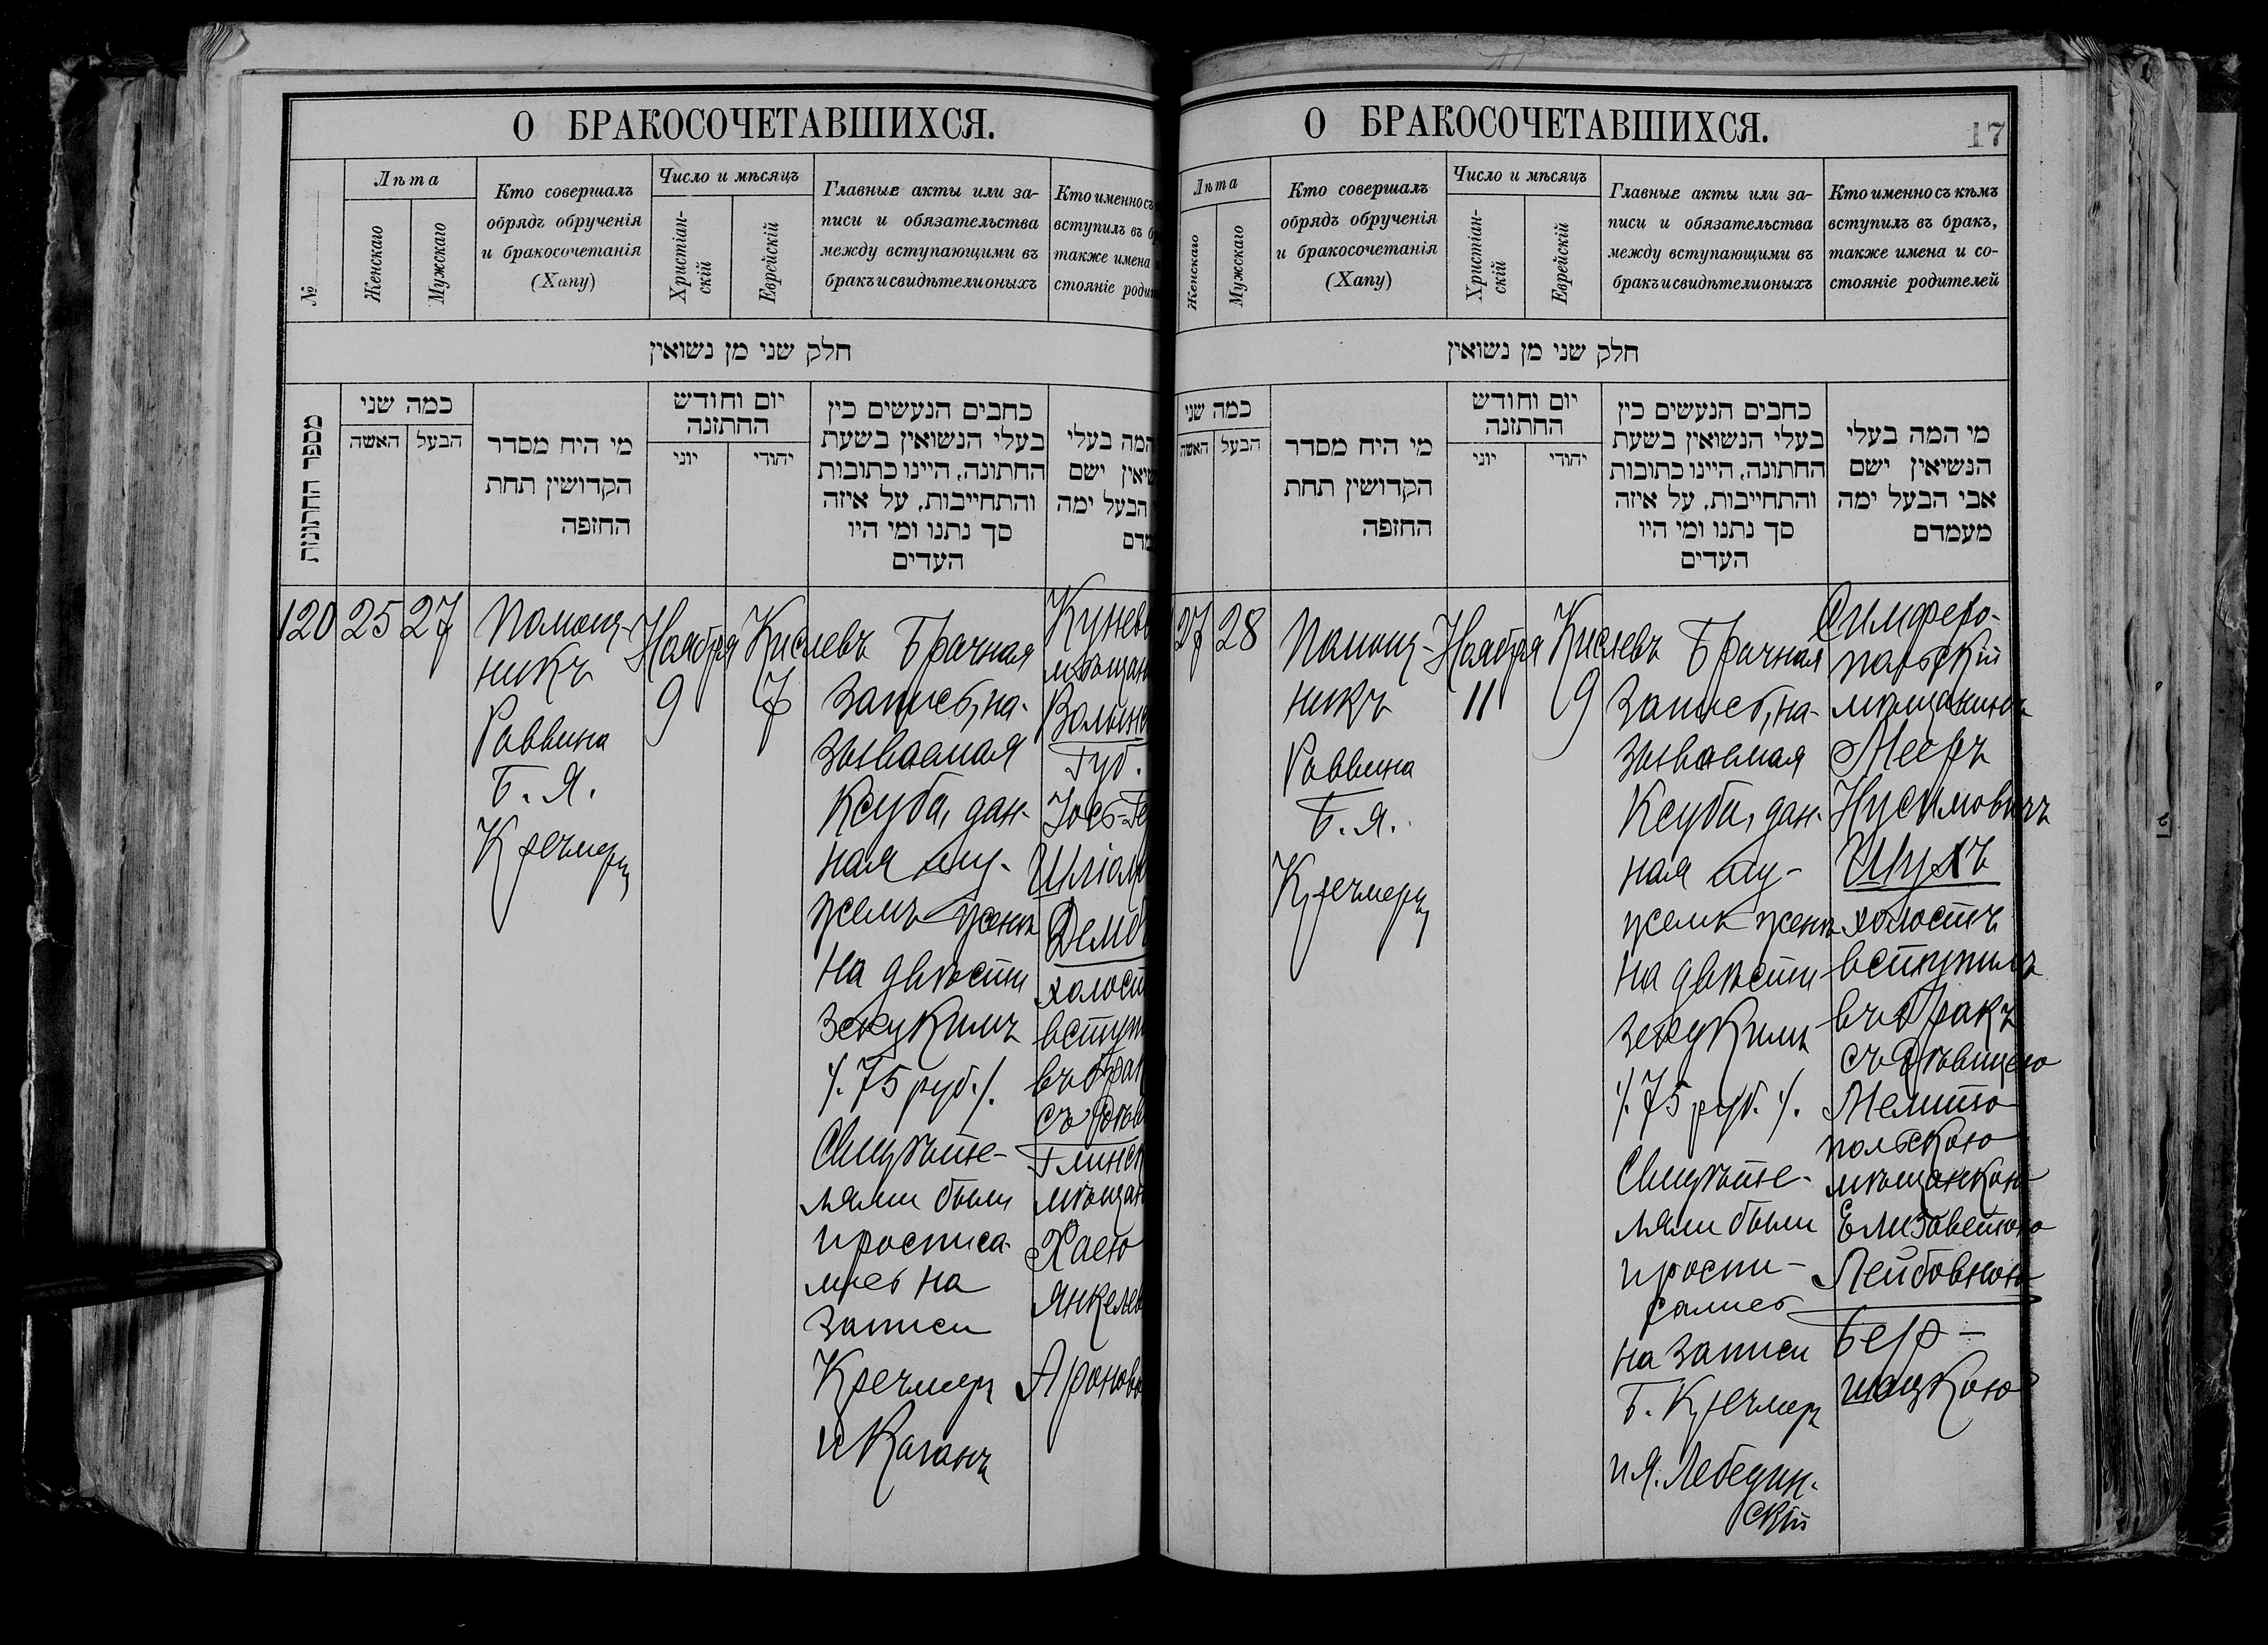 О БРАКОСОЧЕТАВШИХСЯ.
№
Лѣта
Женскаго
Мужскаго
Кто совершалъ
обрядъ обрученія
и бракосочетанія
(Хапу)
Число и мѣсяцъ
Христіан-
скій
Еврейскій
Главные акты или за-
писи и обязательства
между вступающими въ
бракъ и свидѣтели оныхъ
Кто именно съ
вступилъ въ б
также имена
стояніе роди
חלק שני מן נשואין
מספר החתונות
כמה שני
האשה
הבעל
מי היח מסדר
הקדושין תחת
החזפה
יום וחודש
החתזנה
יוני
יהודי
כחבים הנעשים כין
בעלי הנשואין בשעת
החתונה, היינו כתובות
והתחייבות, על איזה
סך נתנו ומי היו
העדים
המה בעלי
שיאין ישם
הבעל ימה
מדם
120
25
27
Помощ-
никъ
Раввина
Б. Я.
Кречмеръ
Ноября
9
Кислевъ
7
Брачная
запись, на-
зываемая
Ксуба, дан-
ная му-
жемъ женѣ
на двѣсти
зекукимъ
/. 75 руб. /.
Свидѣте-
лями были
и росписа-
лись на
записи
Кречмеръ
и Каганъ
Кунев
мѣщан
Волынс
Губ.
Іось-Ге
Шліом
Демб
холост
вступ
въ брак
съ дѣв
Глинск
мѣщан
Хаею
Янкелев
Ароново
О БРАКОСОЧЕТАВШИХСЯ.
17
Лѣта
Женскаго
Мужскаго
Кто совершалъ
обрядъ обрученія
и бракосочетанія
(Хапу)
Число и мѣсяцъ
Христіан-
скій
Еврейскій
Главные акты или за-
писи и обязательства
между вступающими въ
бракъ и свидѣтели оныхъ
Кто именно съ кѣмъ
вступилъ въ бракъ,
также имена и со-
стояніе родителей
חלק שני מן נשואין
כמה שני
האשה
הבעל
מי היח מסדר
הקדושין תחת
החזפה
יום וחודש
החתזנה
יוני
יהודי
כחבים הנעשים כין
בעלי הנשואין בשעת
החתונה, היינו כתובות
והתחייבות, על איזה
סך נתנו ומי היו
העדים
מי המה בעלי
הנשיאין ישם
אבי הבעל ימה
מעמדם
27
28
Помощ-
никъ
Раввина
Б. Я.
Кречмеръ
Ноября
11
Кислевъ
9
Брачная
запись, на-
зываемая
Ксуба, дан-
ная му-
жемъ женѣ
на двѣсти
зекукимъ
/. 75 руб. /.
Свидѣте-
лями были
и роспи-
сались
на записи
Б. Кречмеръ
и Я. Лебедин-
скій
Симферо-
польскій
мѣщанинъ
Мееръ
Нусимовичъ
Шухъ
холостъ
вступилъ
въ бракъ
съ дѣвицею
Мелито-
польскою
мѣщанкою
Елизаветою
Лейбовною
Бер-